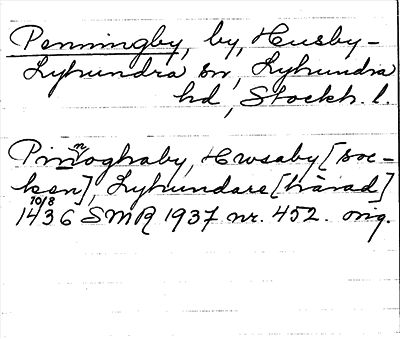 Penningby, by, Husby-
Lyhundra sn, Lyhundra
hd, Stockh. l.
Pinnoghaby, Hwsaby [soc-
ken], Lyhundare [härad]
10/8
1436 SMR 1937 nr. 452. orig.